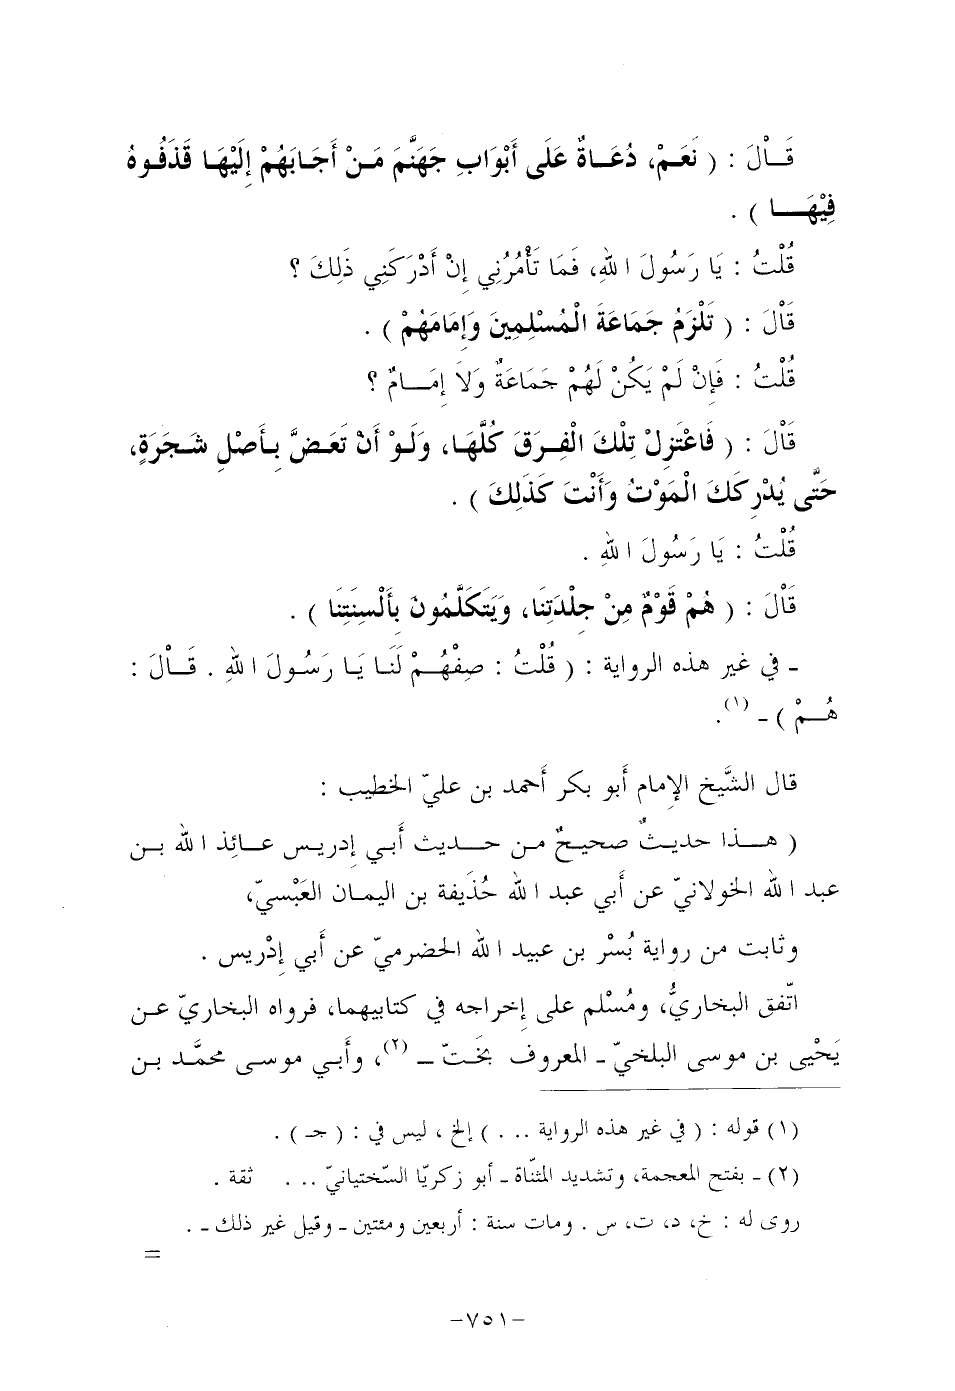 قَـالْلَ : ( نَعَـمْ، دُعَـاةٌ عَلَى أَبْوَابِ جَهَنَّمَ مَـنْ أَجَابَهُمْ إِلَيْهَـا قَذَفُـوهُ
فِيْهَـــا ) .
قُلْتُ : يَا رَسُولَ اللهِ، فَمَا تَأْمُرُنِي إِنْ أَدْرَكَنِي ذَلِكَ ؟
قَاْلَ : ( تَلْزَمُ جَمَاعَةَ الْمُسْلِمِينَ وَإِمَامَهُمْ ) .
قُلْتُ : فَإِنْ لَمْ يَكُنْ لَهُمْ جَمَاعَةٌ وَلاَ إِمَـــامٌ ؟
قَاْلَ : ( فَاعْتَزِلْ تِلْكَ الْفِـرَقَ كُلَّهَـا، وَلَـوْ أَنْ تَعَـضَّ بِـأَصْلِ شَـجَرَةٍ،
حَتَّى يُدْرِكَكَ الْمَوْتُ وَأَنْتَ كَذَلِكَ ) .
قُلْتُ : يَا رَسُولَ اللهِ .
قَاْلَ : ( هُمْ قَوْمٌ مِنْ جِلْدَتِنَا، وَيَتَكَلَّمُونَ بِأَلْسِنَتِنَا ) .
- في غير هذه الرواية : ( قُلْتُ : صِفْهُـــمْ لَنَـا يَـا رَسُـولَ اللهِ . قَـاْلَ :
هُـــمْ ) - (١).
قال الشَّيخ الإمام أَبو بكر أَحمد بن عليّ الخطيب :
( هـــذا حديـثٌ صحيـحٌ مـن حـــديث أَبـي إدريـس عـائِذ الله بـن
عبد الله الخولانيّ عن أَبي عبد الله حُذَيفة بن اليمـان العَبْسيّ،
وثابت من رواية بُسْر بن عبيد الله الحضرميّ عن أَبي إِدْريس .
اتّفق البخاريُّ، ومُسْلم على إخراجه في كتابيهما، فرواه البخاريّ عـن
يَحْيى بن موسى البلخيّ - المعروف بخَتّ - (٢)، وأَبـي موسـى محمَّـد بـن
(١) قوله : ( في غير هذه الرواية ... ) إلخ ، ليس في : ( جـ ) .
(٢) - بفتح المعجمة، وتشديد المثنّاة - أبو زكريّا السّختيانيّ ... . ثقة .
روى له : خ، د، ت، س . ومات سنة : أربعين ومئتين - وقيل غير ذلك - .
=
-٧٥١-